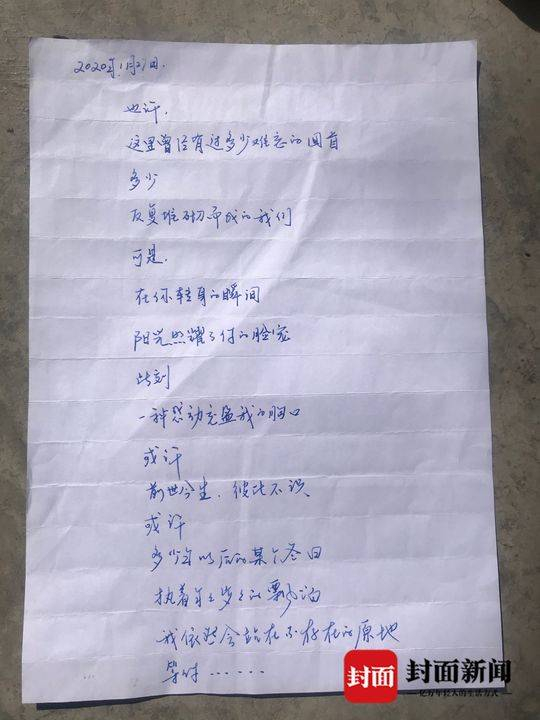 2020年1月21日.
也许.
这里曾经有过多少难忘的回首
多少
反复堆砌而成的我们
可是.
在你转身的瞬间
阳光照耀了你的脸
此刻
一种感动充盈我的胸口
或许
前世今生，彼此不识
或许
多少年以后的某个冬日
执着年年岁岁的飘泊
我依然会站在不存在的原地
等待……
封面 封面新闻
亿万年轻人的生活方式